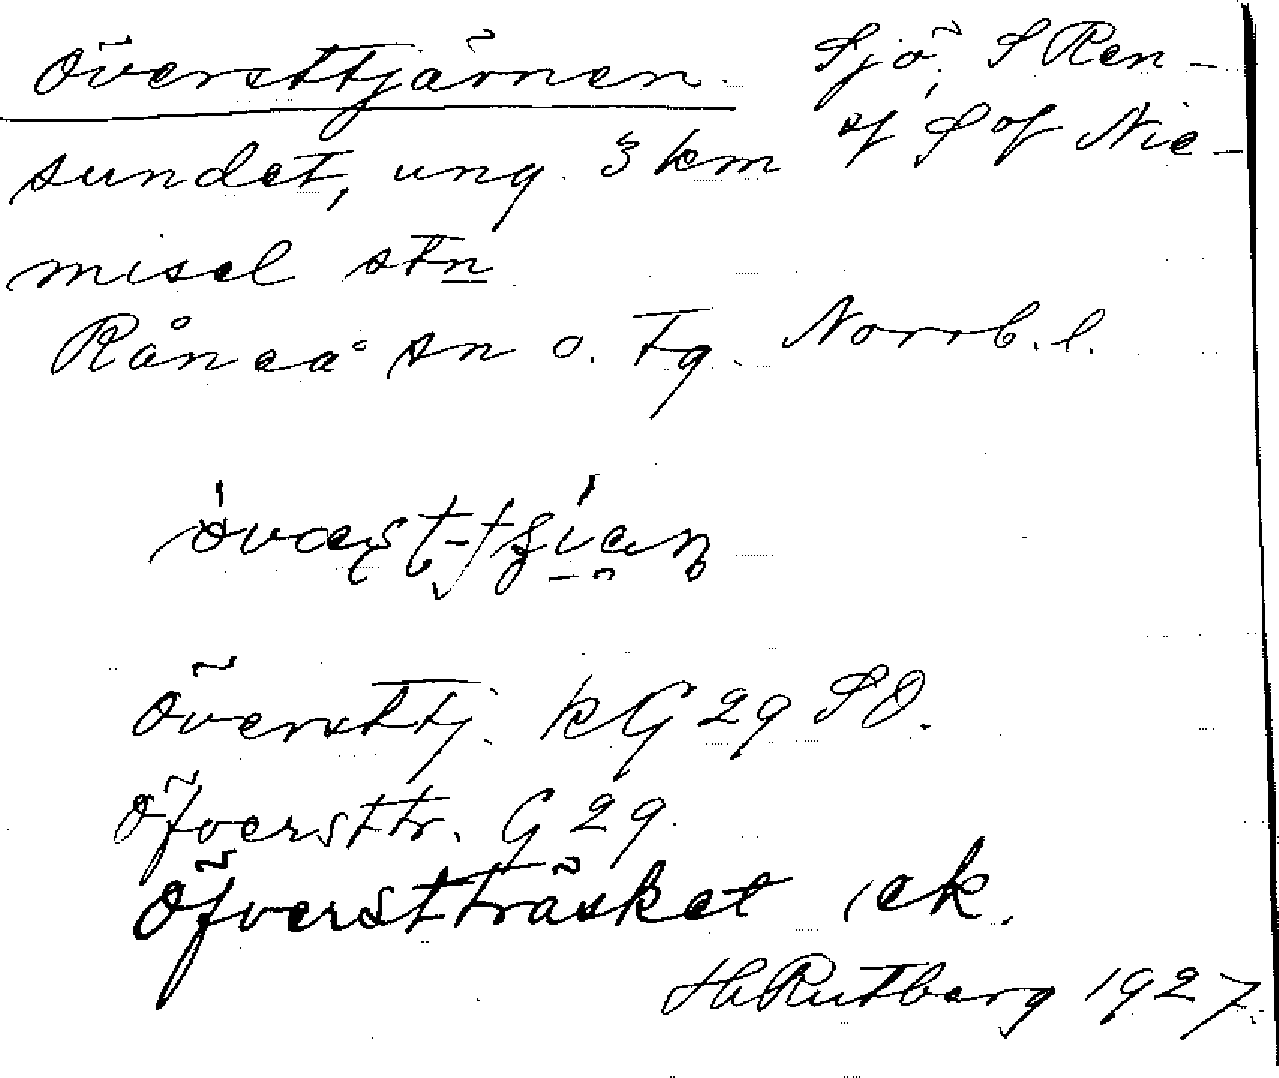 Översttjärnen. Sjö, S Ren-
sundet, ung. 3 km af S of Nie-
misel stn
Råneå sn o. tg. Norrb. l.
Översttj. kG 29 SO.
Öfversttr. G 29.
Öfverstträsket, ek.
H Rutberg 1927.